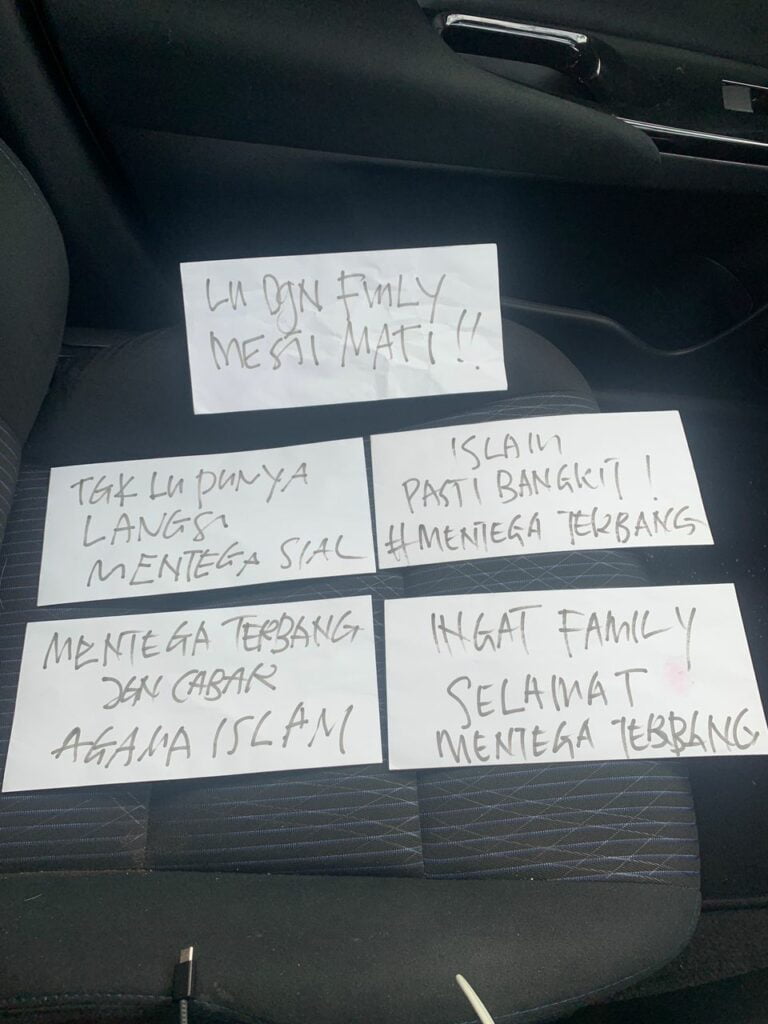 LU DGN FMLY
MESTI MATI!!
TGK LU PUNYA
LANGSI
MENTEGA SIAL
ISLAM
PASTI BANGKIT!
#MENTEGA TERBANG
MENTEGA TERBANG
JGN CABAR
AGAMA ISLAM
INGAT FAMILY
SELAMAT
MENTEGA TERBANG